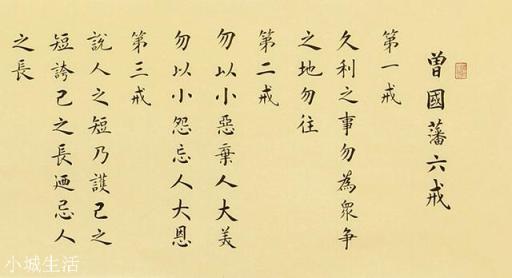 曾國藩六戒
第一戒
久利之事勿為眾争
之地勿往
第二戒
勿以小惡棄人大美
勿以小怨忘人大恩
第三戒
説人之短乃護己之
短誇己之長迺忌人
之長
小城生活